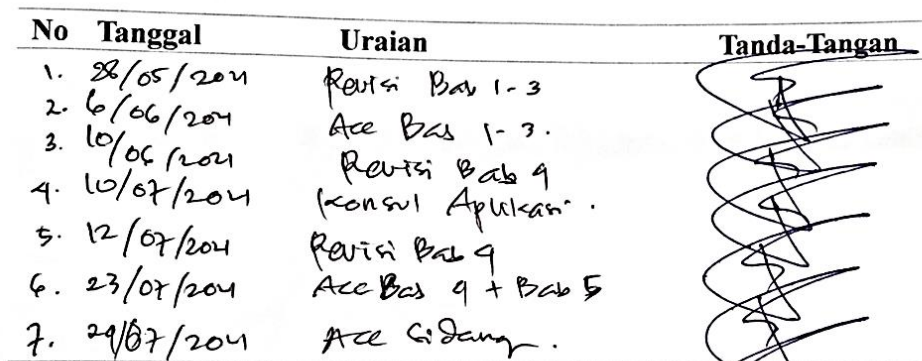 No Tanggal Uraian Tanda-Tangan
1. 28/05/2021 Revisi Bab 1-3
2. 6/06/2021 Acc Bab 1-3.
3. 10/06/2021 Revisi Bab 4
4. 10/07/2021 Konsul Aplikasi.
5. 12/07/2021 Revisi Bab 4
6. 23/07/2021 Acc Bab 4 + Bab 5
7. 29/07/2021 Acc Sidang.